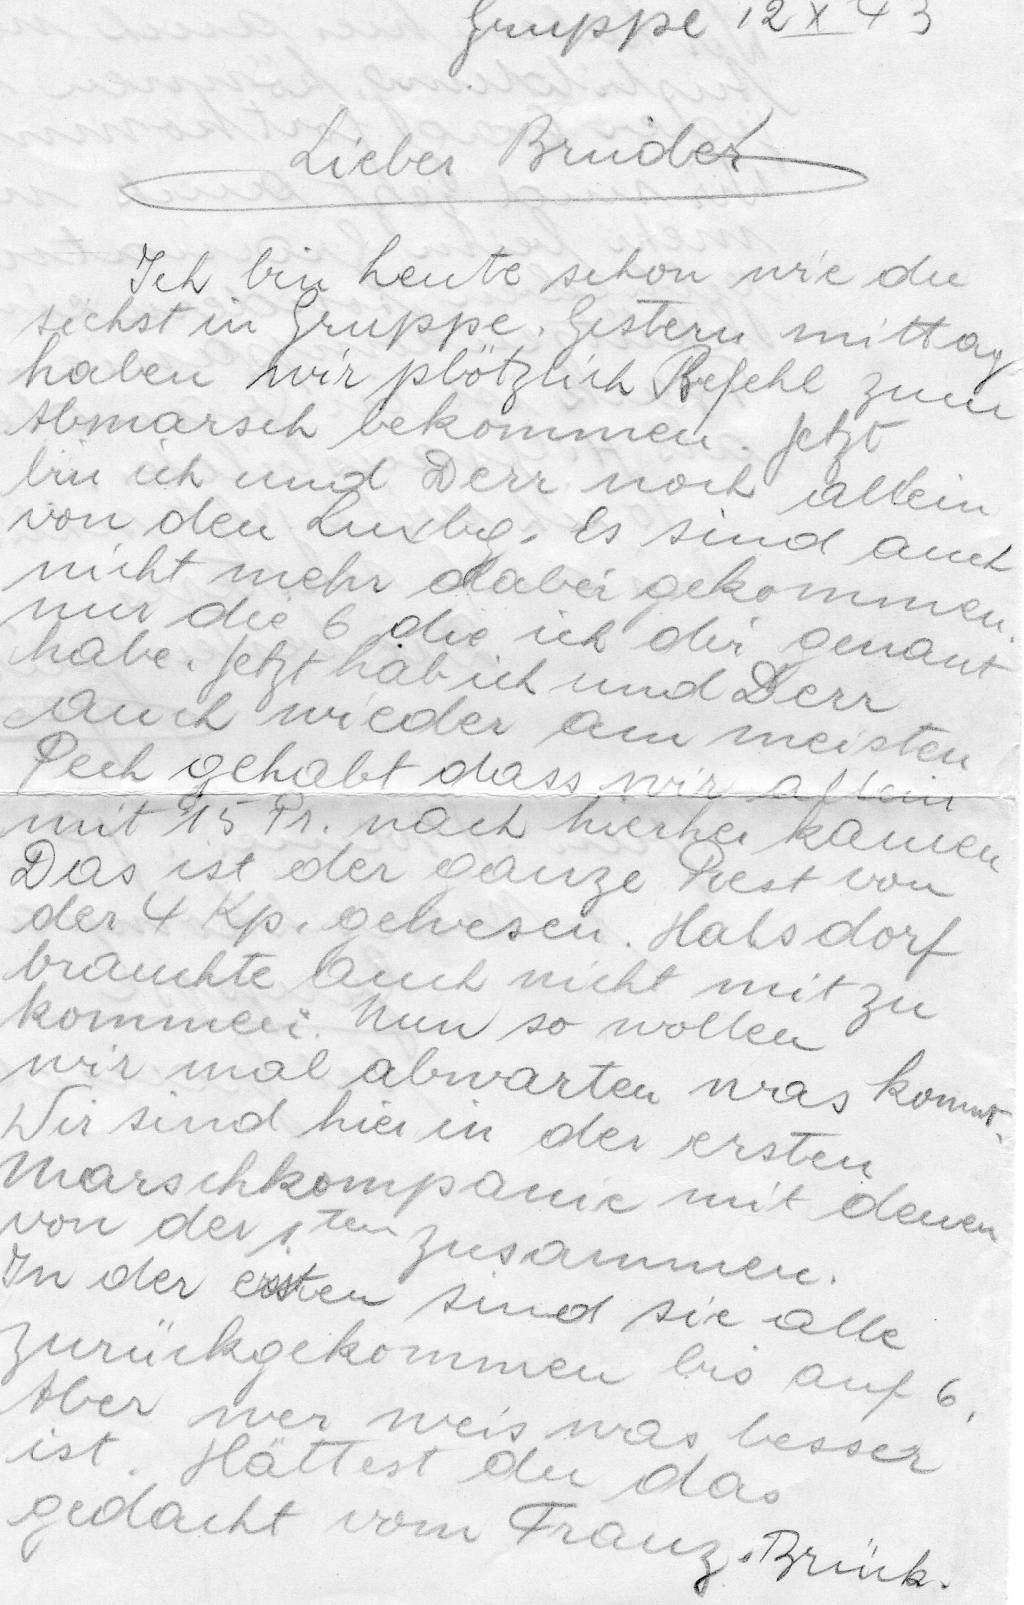 Gruppe 12 X 43
Lieber Bruder
Ich bin heute schon wie du
siehst in Gruppe. Gestern mittag
haben wir plötzlich Befehl zum
Abmarsch bekommen. Jetzt
bin ich und Derr noch allein
von den Luxbg. Es sind auch
nicht mehr dabei gekommen.
nur die 6 die ich dir genant
habe. Jetzt hab ich und Derr
auch wieder am meisten
Pech gehabt dass wir allein
mit 15 Pr. nach hierher kamen
Das ist der ganze Rest von
der 4 Kp. gewesen. Halsdorf
brauchte auch nicht mitzu
kommen. Nun so wollen
wir mal abwarten was kommt.
Wir sind hier in der ersten
Marschkompanie mit denen
von der 1ten zusammen.
In der ersten sind sie alle
zurückgekommen bis auf 6.
Aber wer weis was besser
ist. Hättest du das
gedacht vom Franz. Brück.